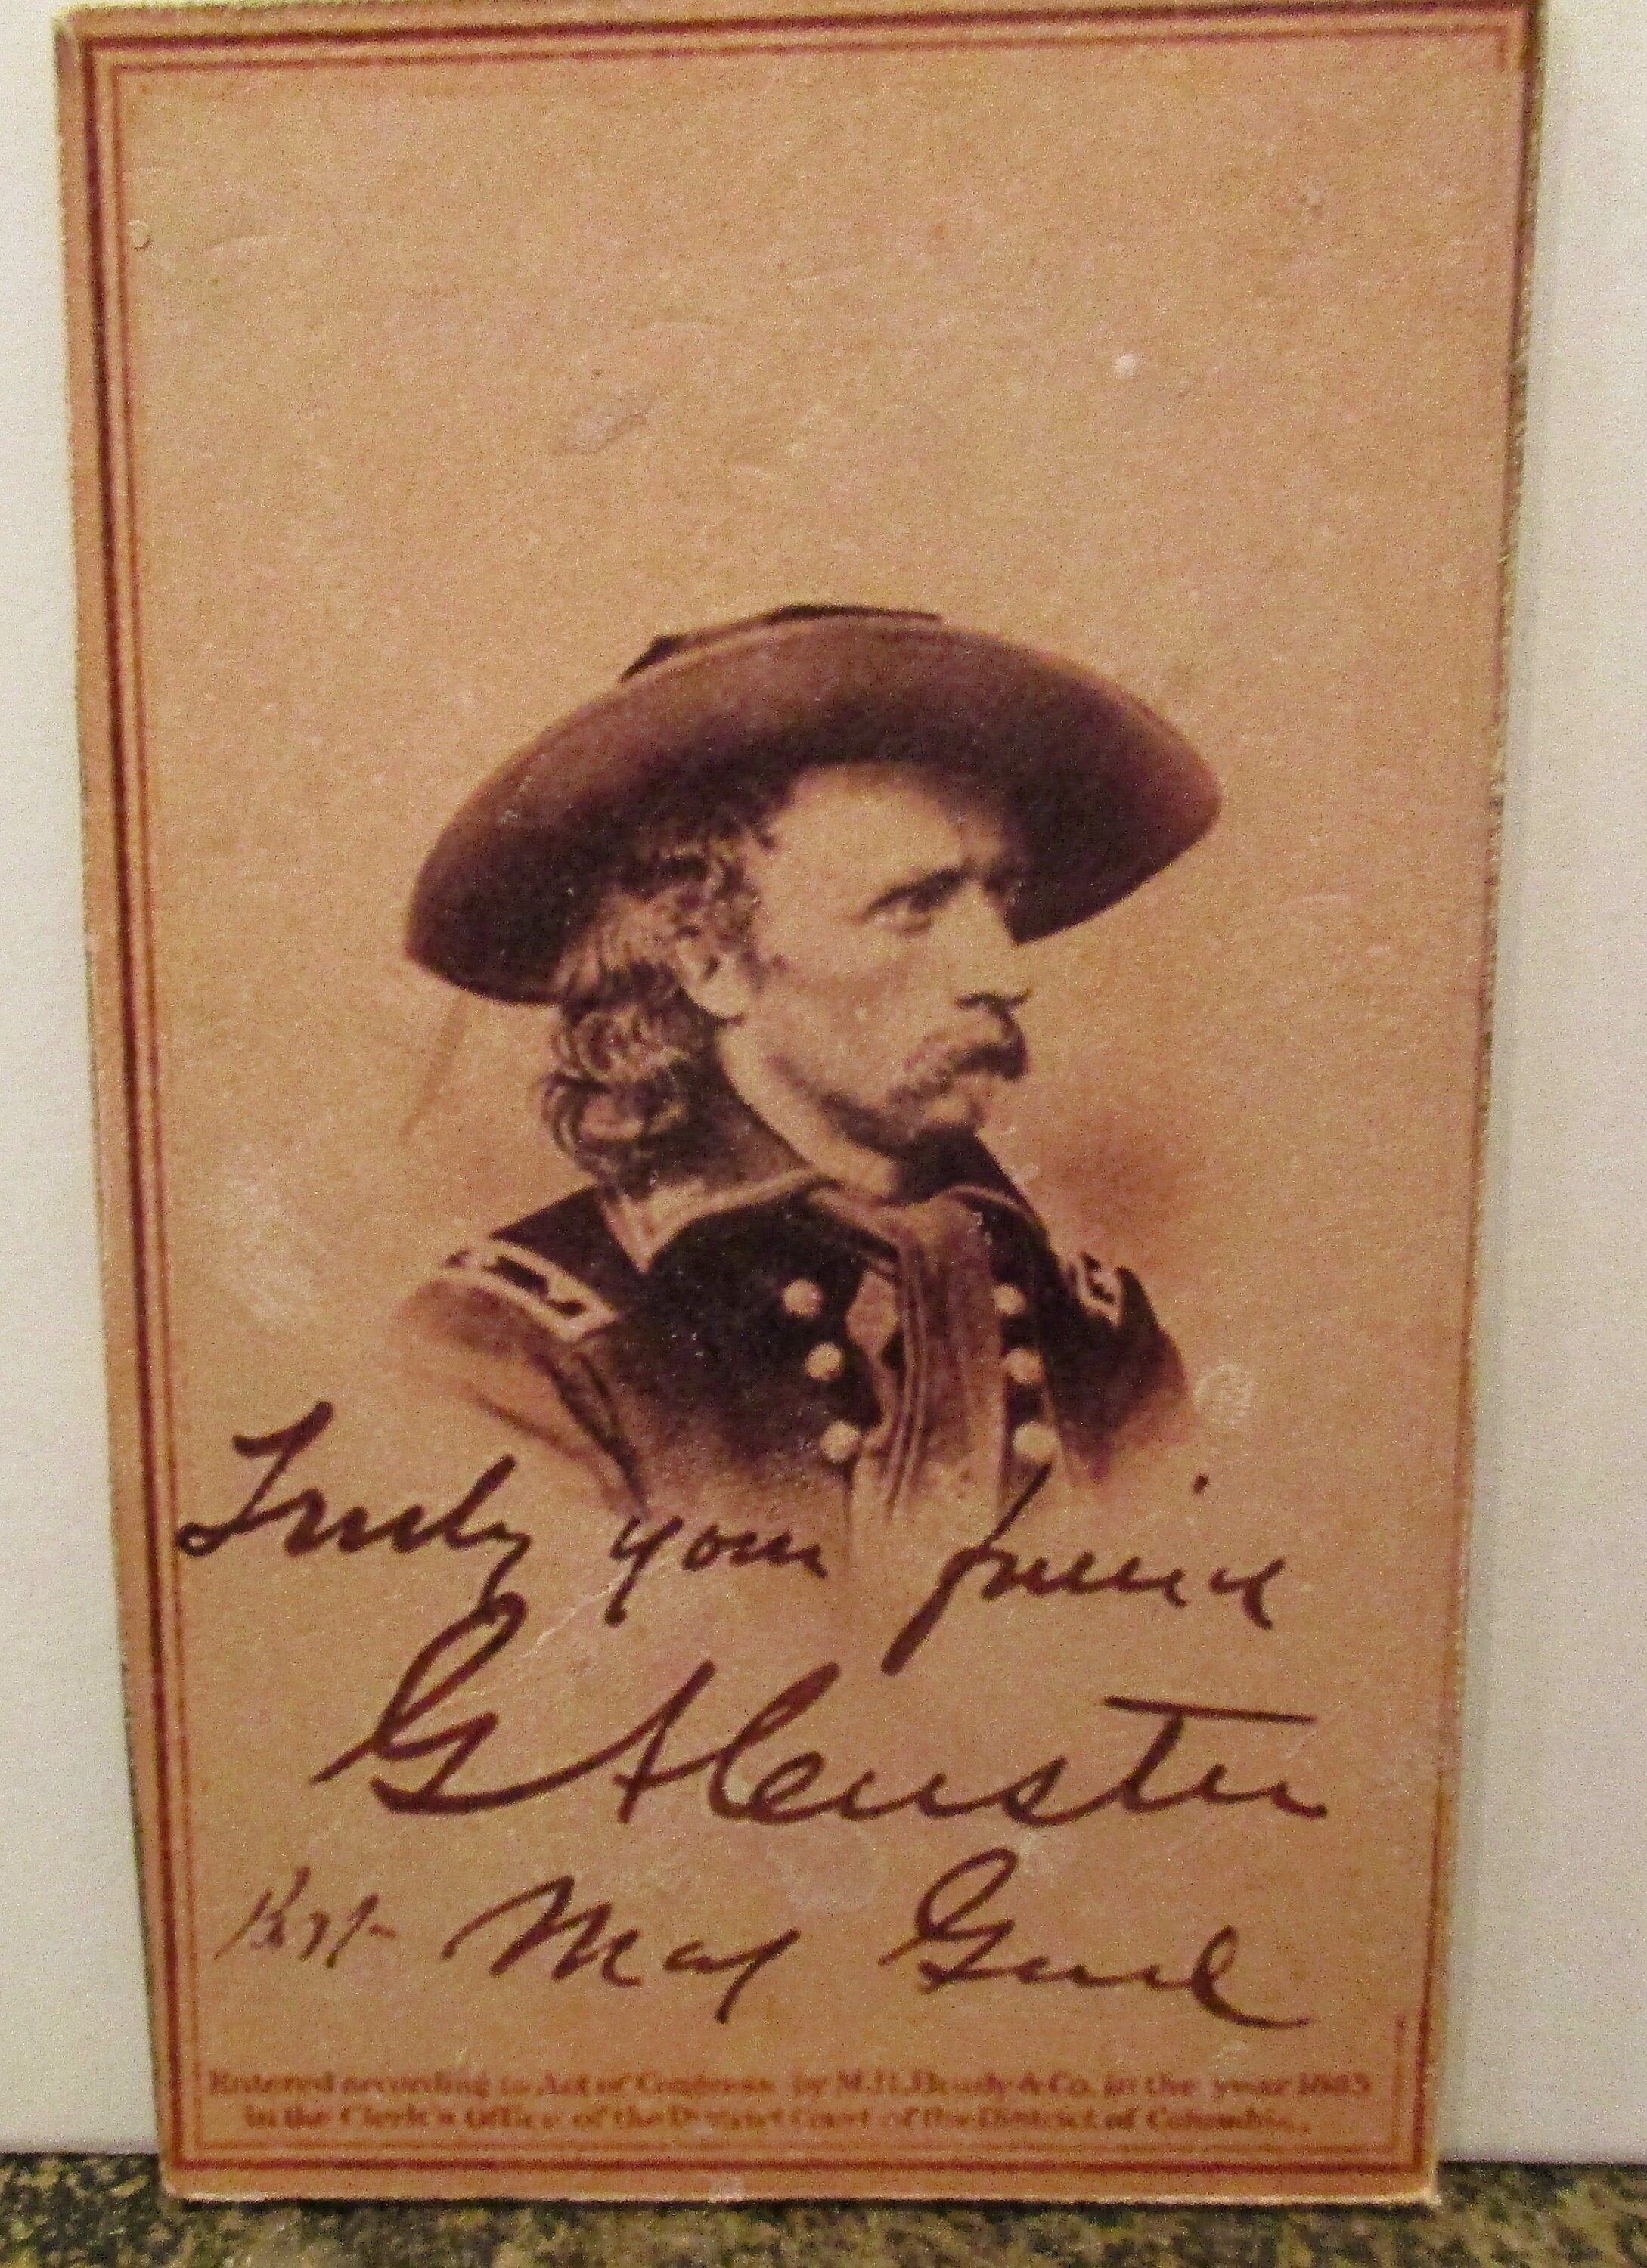 Truly your friend
G A Custer
Bvt Maj Genl
Entered according to Act of Congress by M.B. Brady & Co. in the year 1865
in the Clerk's Office of the District Court of the District of Columbia.